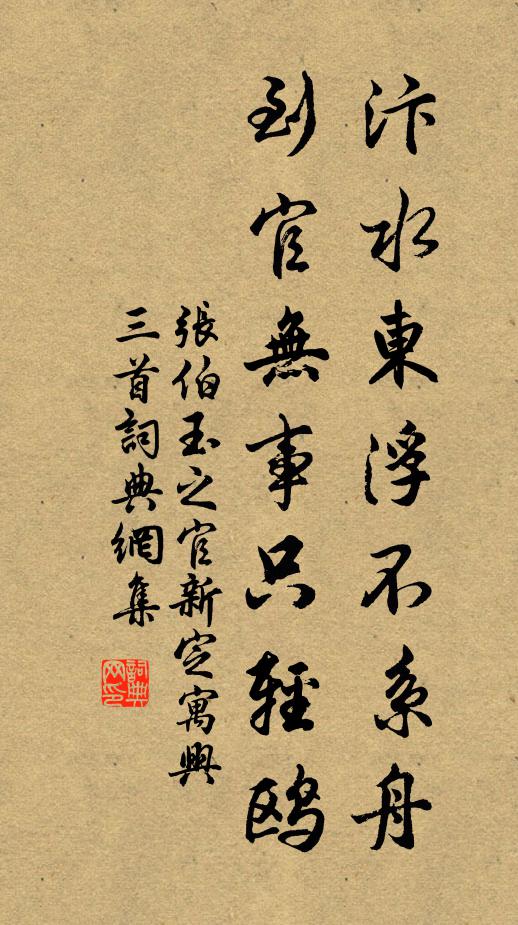 汴水東浮不系舟
到官無事只輕鸥
張伯玉之官新定寓興
三首詞典網集
詞典
网印